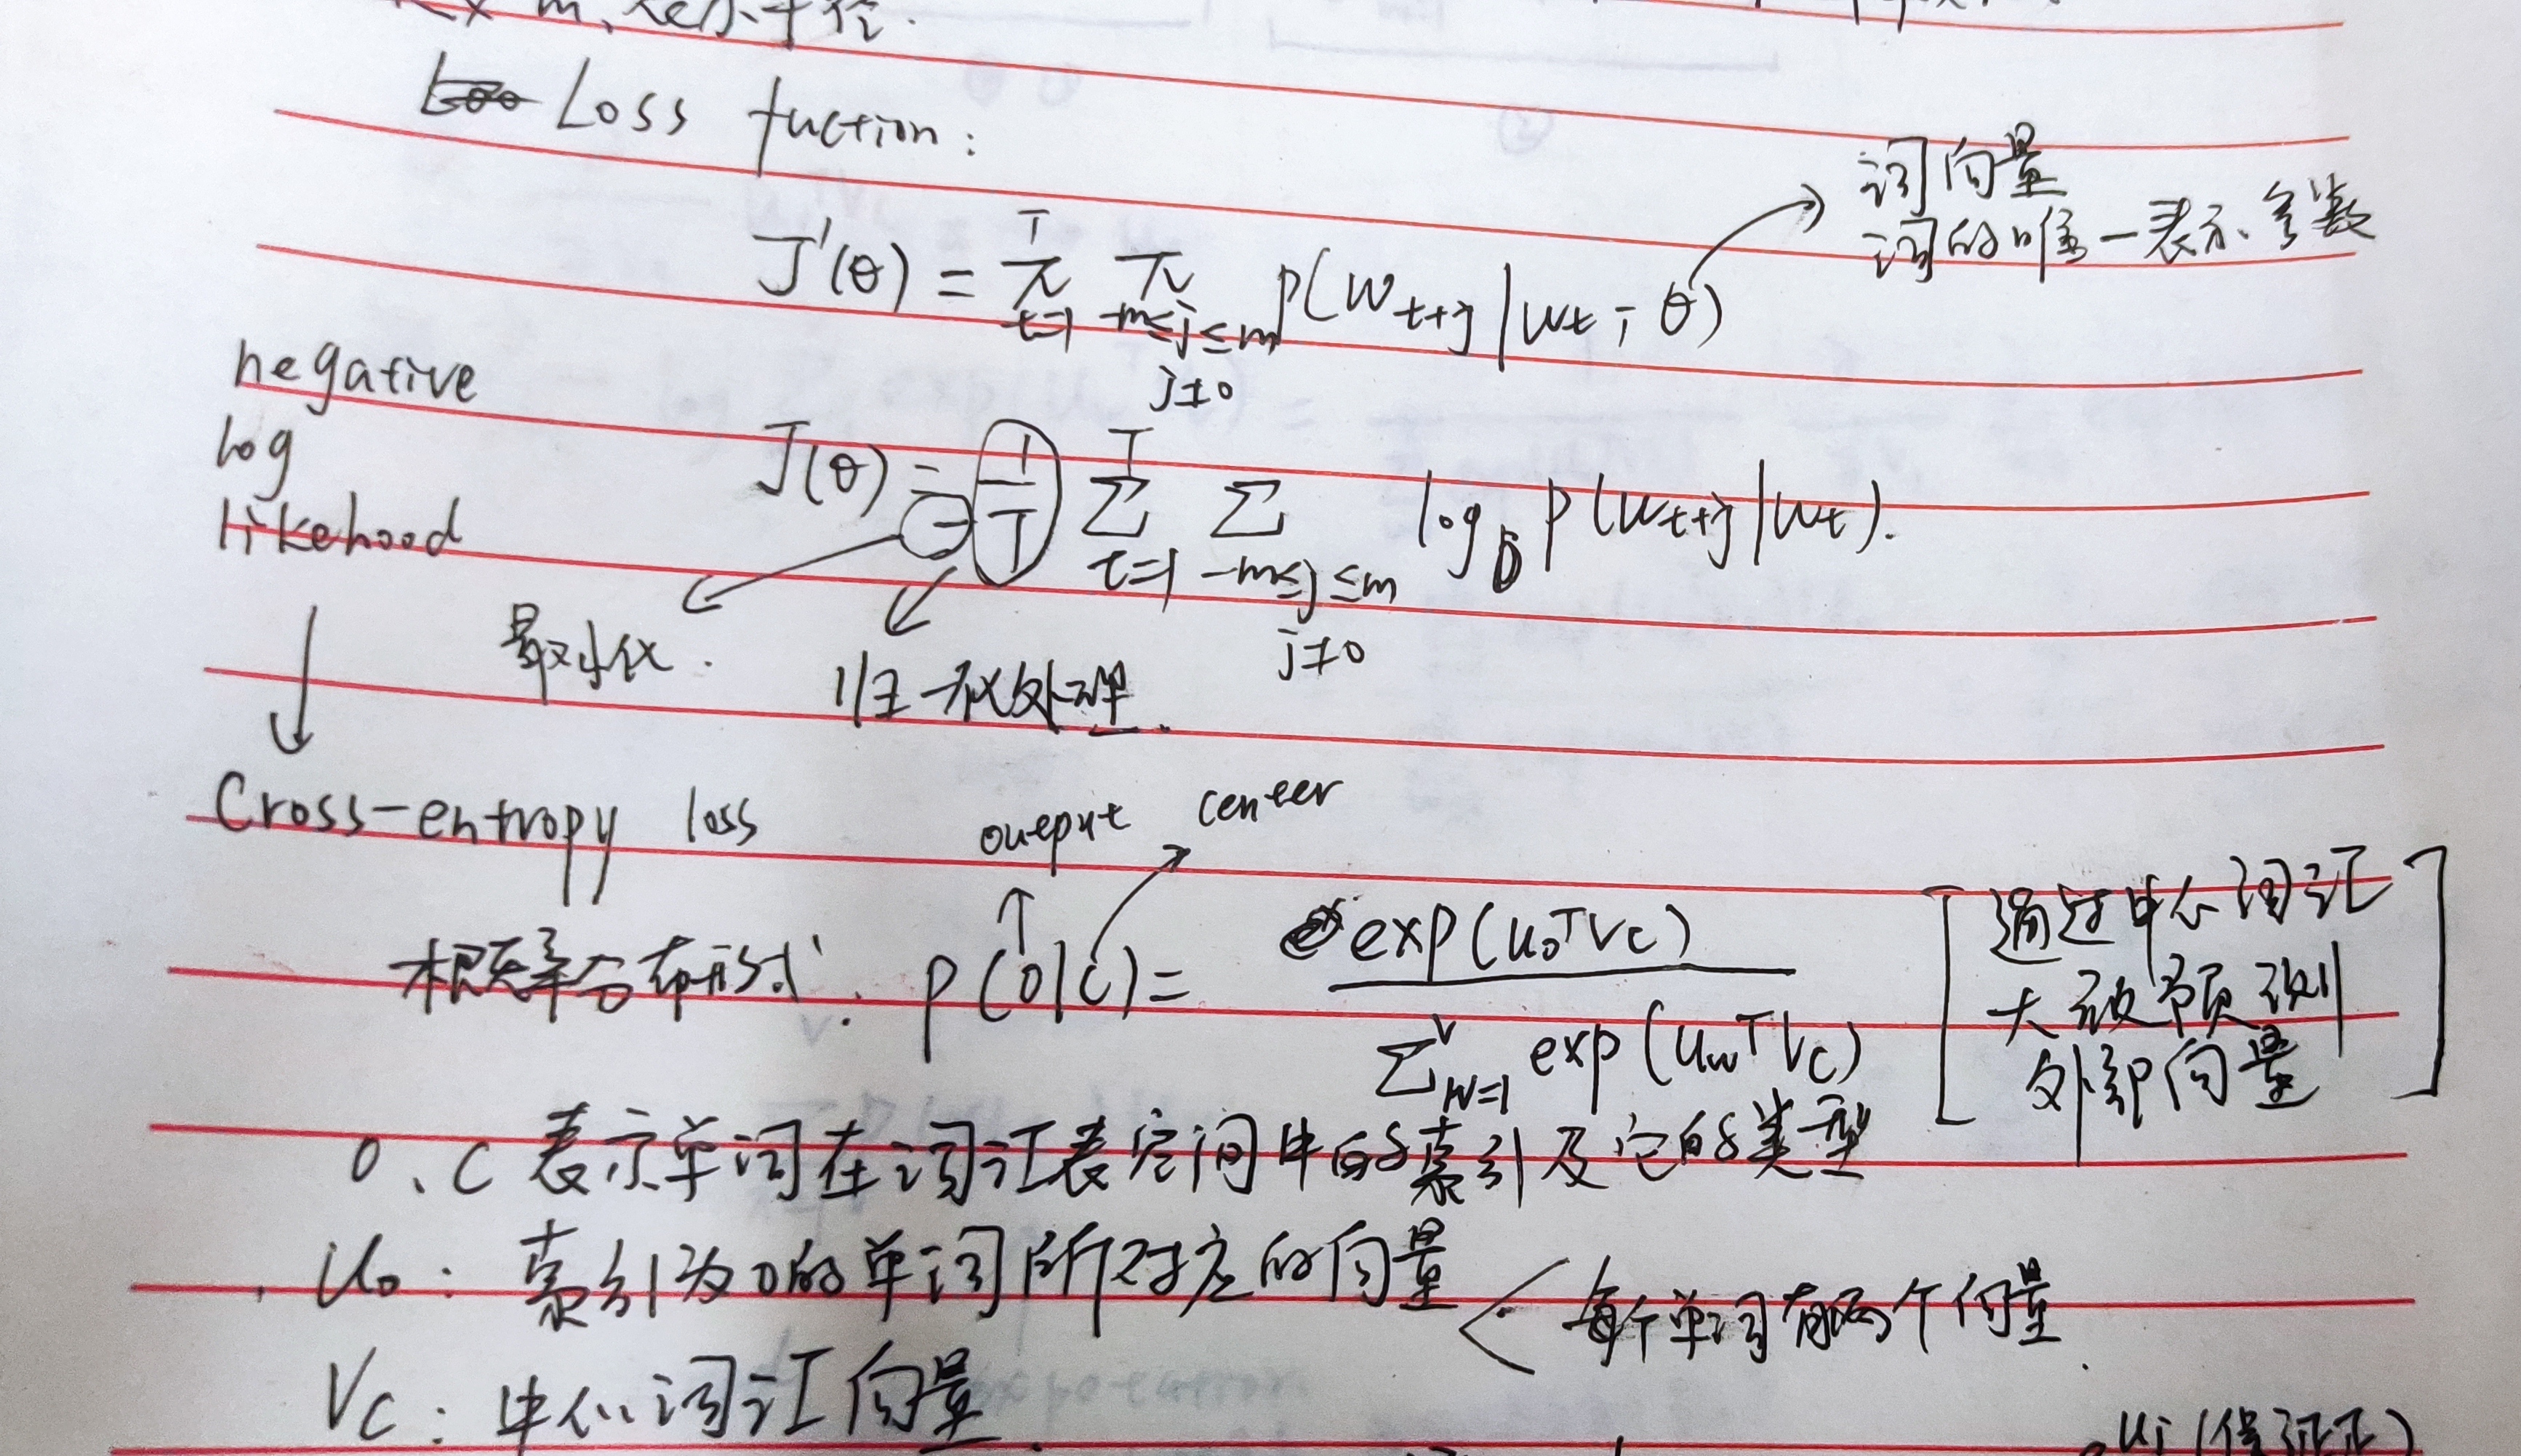 m,表示半径.
Loss fuction:
词向量
词的唯一表示、参数
J'(θ) = π^T_{t=1} π_{-m≤j≤m, j≠0} p(w_{t+j} | w_t ; θ)
negative
log
likehood
J(θ) = - 1/T Σ^T_{t=1} Σ_{-m≤j≤m, j≠0} log p(w_{t+j} | w_t).
最小化.
归一化处理.
Cross-entropy loss
output center
概率分布形式: p(o|c) = exp(u_o^T v_c) / Σ^v_{w=1} exp(u_w^T v_c)
[通过中心词汇
大致预测
外部向量]
o、c 表示单词在词汇表空间中的索引及它的类型
u_o: 索引为o的单词所对应的向量
每个单词有两个向量.
V_c: 中心词汇向量.